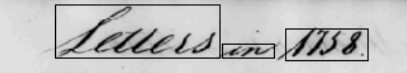 Letters in 1758.